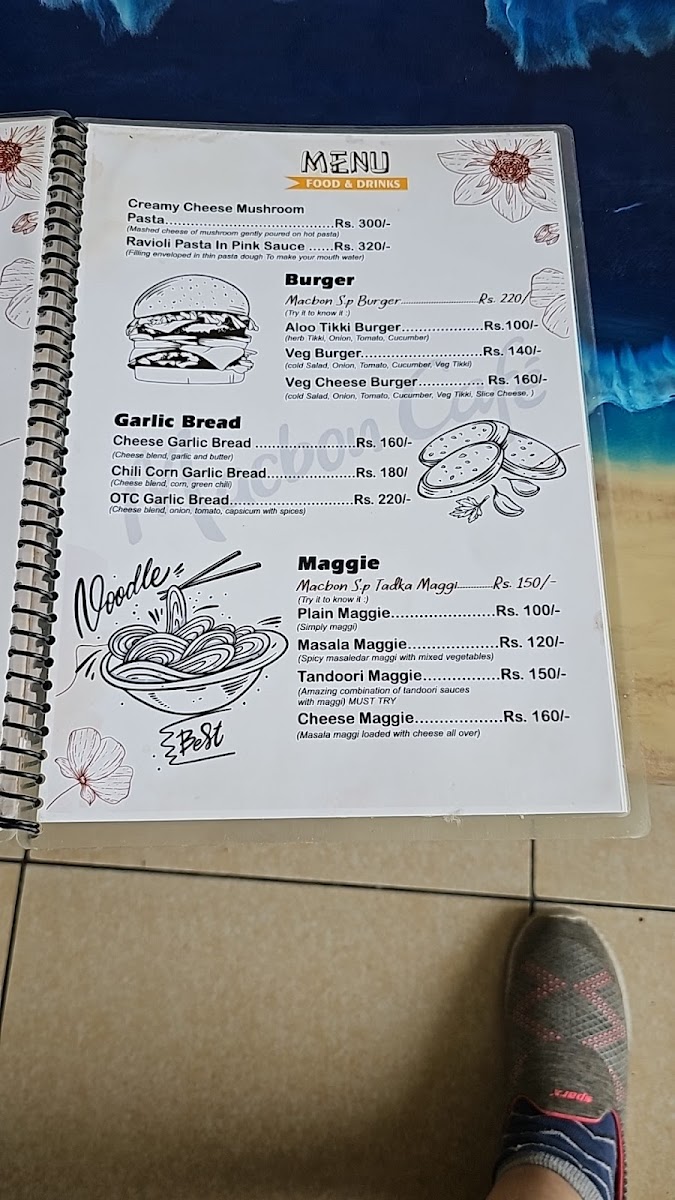 MENU
FOOD & DRINKS
Creamy Cheese Mushroom
Pasta......................................Rs. 300/-
(Mashed cheese of mushroom gently poured on hot pasta)
Ravioli Pasta In Pink Sauce ......Rs. 320/-
(Filling enveloped in thin pasta dough To make your mouth water)
Burger
Macbon S.p Burger..............................Rs. 220/
(Try it to know it :)
Aloo Tikki Burger....................Rs.100/-
(herb Tikki, Onion, Tomato, Cucumber)
Veg Burger..............................Rs. 140/-
(cold Salad, Onion, Tomato, Cucumber, Veg Tikki)
Veg Cheese Burger................ Rs. 160/-
(cold Salad, Onion, Tomato, Cucumber, Veg Tikki, Slice Cheese, )
Garlic Bread
Cheese Garlic Bread .........................Rs. 160/-
(Cheese blend, garlic and butter)
Chili Corn Garlic Bread......................Rs. 180/
(Cheese blend, corn, green chili)
OTC Garlic Bread...............................Rs. 220/-
(Cheese blend, onion, tomato, capsicum with spices)
Macbon Café
Noodle
Best
Maggie
Macbon S.p Tadka Maggi..............Rs. 150/-
(Try it to know it :)
Plain Maggie.........................Rs. 100/-
(Simply maggi)
Masala Maggie......................Rs. 120/-
(Spicy masaledar maggi with mixed vegetables)
Tandoori Maggie..................Rs. 150/-
(Amazing combination of tandoori sauces
with maggi) MUST TRY
Cheese Maggie....................Rs. 160/-
(Masala maggi loaded with cheese all over)
sparx